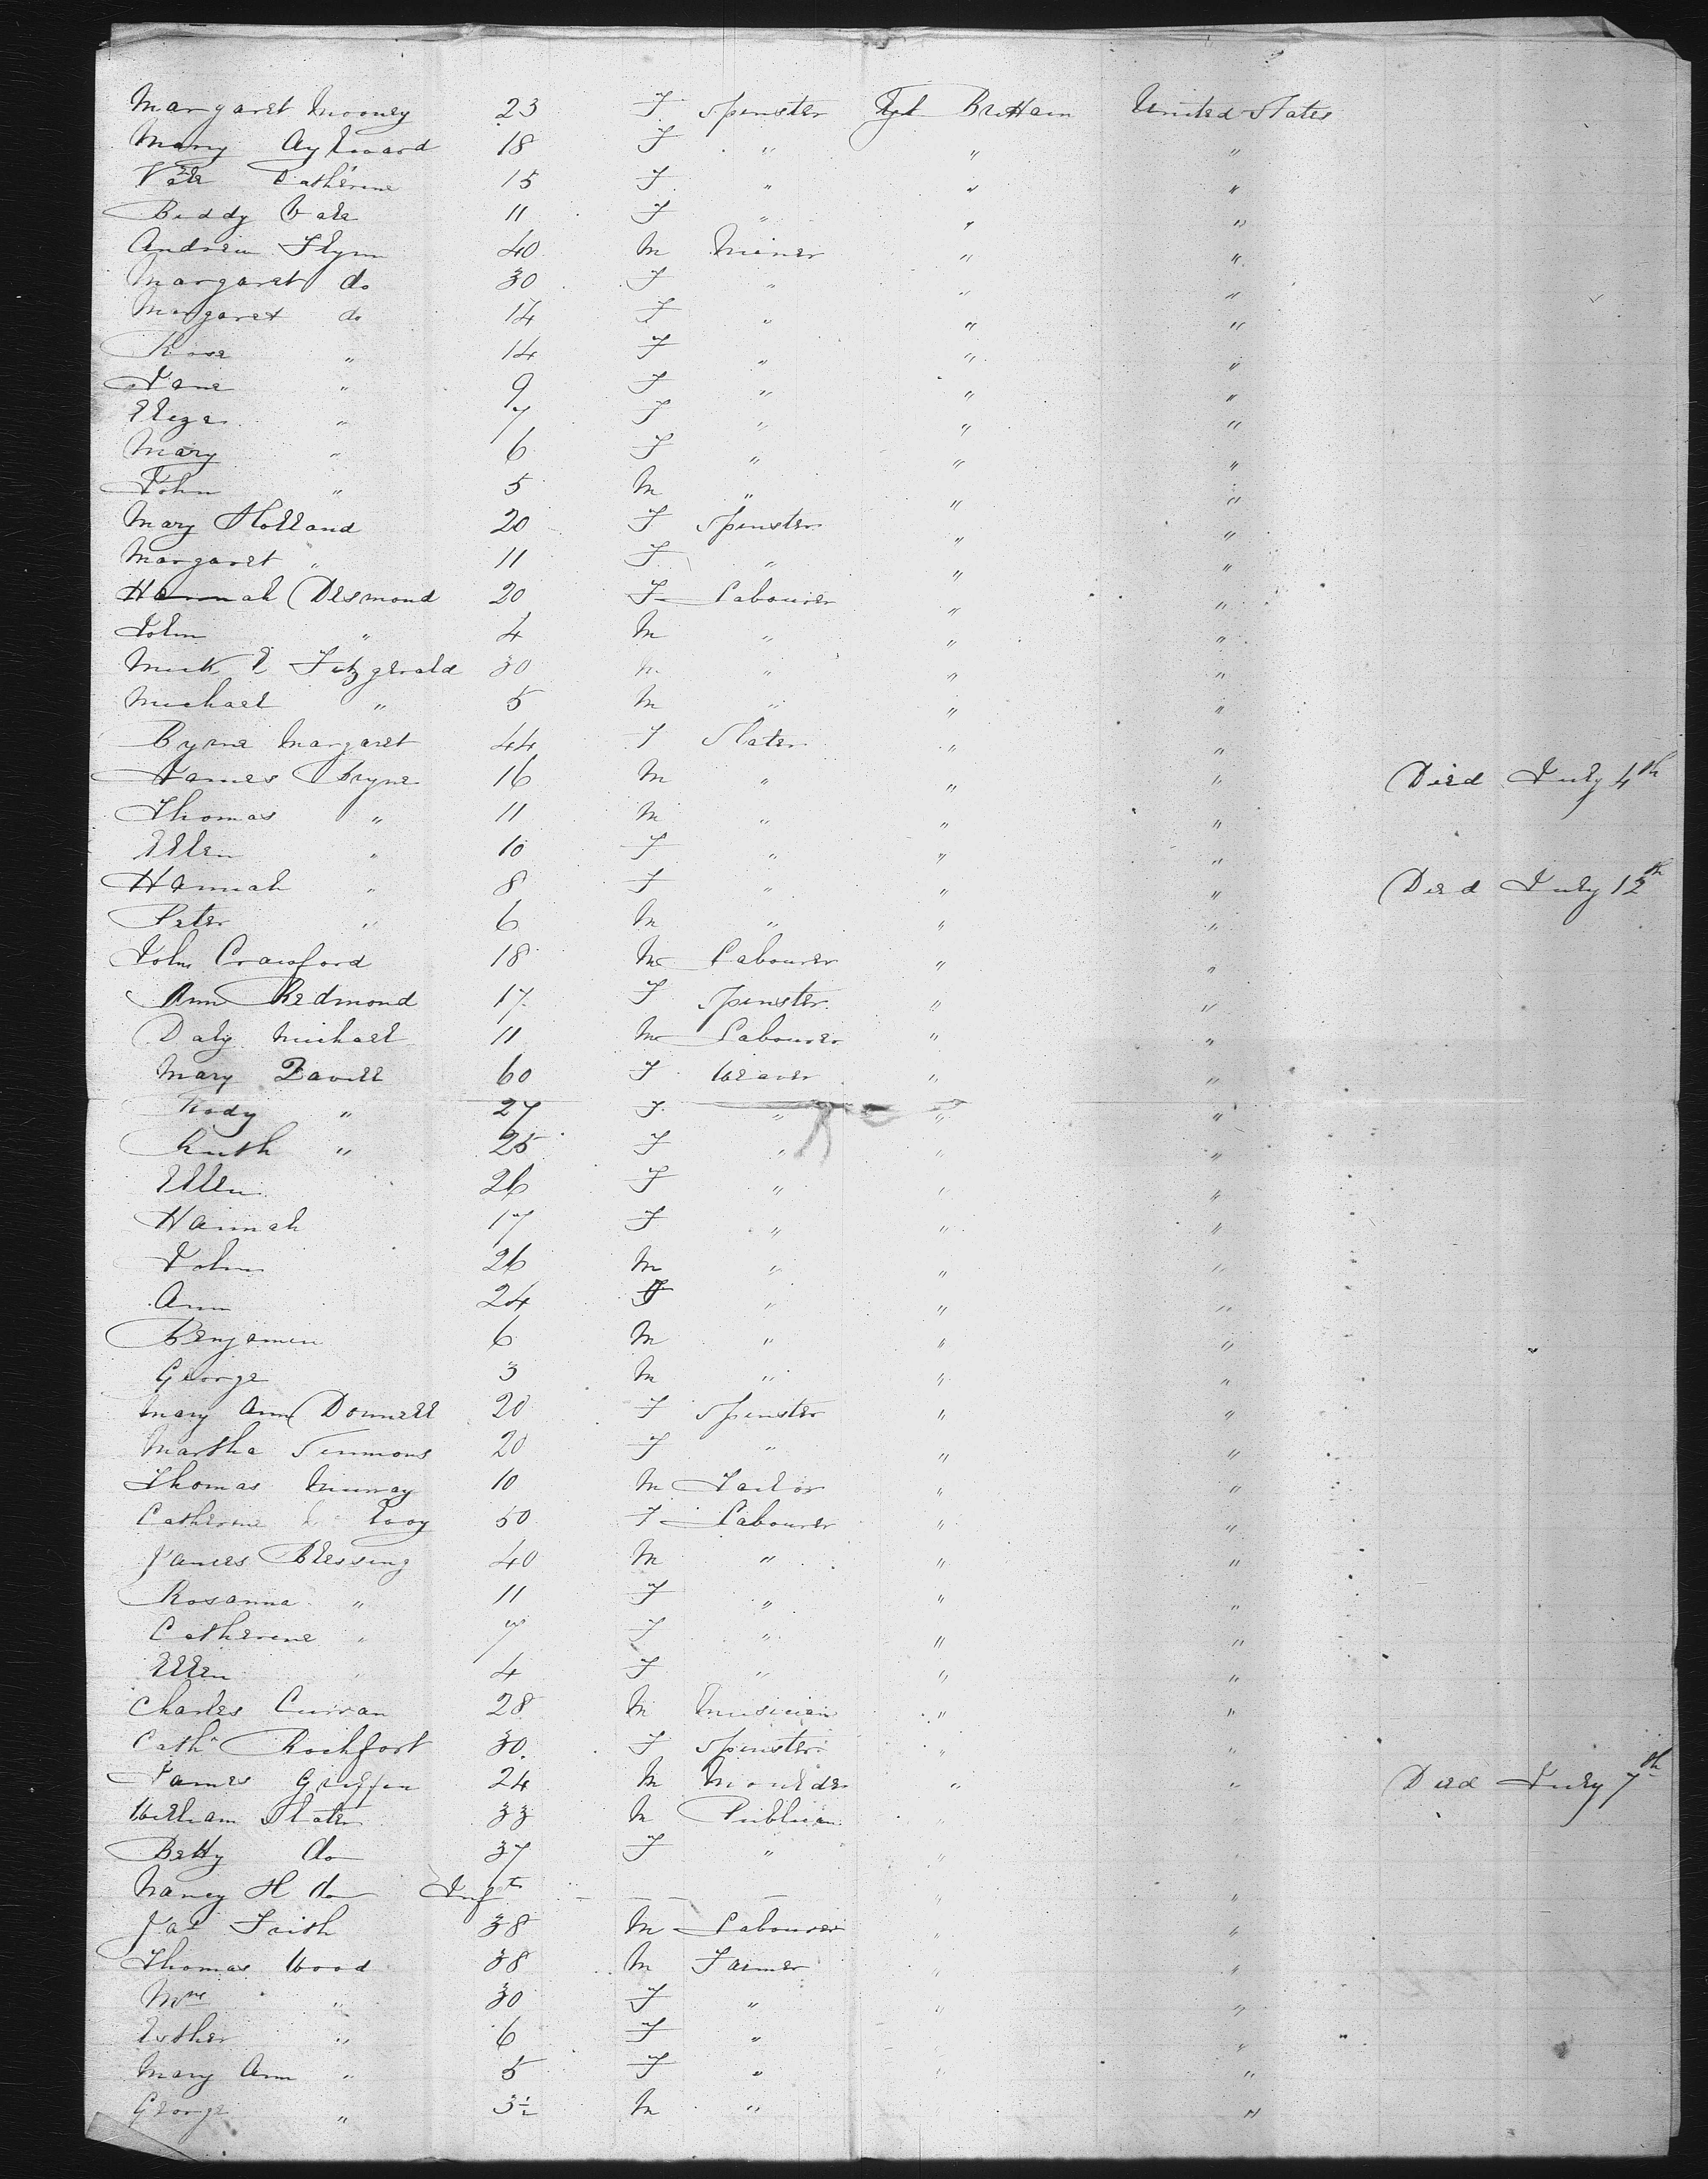 Margaret Mooney 23 F Spinster Gt Brittain United States
Mary Aylward 18 F " " "
Vale Catherine 15 F " " "
Biddy Vale 11 F " " "
Andrew Flynn 40 M Miner " "
Margaret do 30 F " " "
Margaret do 14 F " " "
Rose " 14 F " " "
Jane " 9 F " " "
Eliza " 7 F " " "
Mary " 6 F " " "
John " 5 M " " "
Mary Holland 20 F Spinster " "
Margaret " 11 F " " "
Hannah Desmond 20 F Labourer " "
John " 4 M " " "
Fitzgerald 30 M " " "
Michael " 5 M " " "
Byrne Margaret 44 F Slater " "
James Bryne 16 M " " " Died July 4th
Thomas " 11 M " " "
Ellen " 10 F " " "
Hannah " 8 F " " " Died July 12th
Peter " 6 M " " "
John Crawford 18 M Labourer " "
Ann Redmond 17 F Spinster " "
Daly Michael 11 M Labourer " "
Mary 60 F Weaver " "
" 27 F " " "
Ruth " 25 F " " "
Ellen 26 F " " "
Hannah 17 F " " "
John 26 M " " "
Ann 24 F " " "
Benjamin 6 M " " "
George 3 M " " "
Mary Ann Donnell 20 F Spinster " "
Martha Simmons 20 F " " "
Thomas Murray 10 M Tailor " "
Catherine 50 F Labourer " "
James Blessing 40 M " " "
Rosanna " 11 F " " "
Catherine " 7 F " " "
Ellen " 4 F " " "
Charles Curran 28 M Musician " "
Cathn Rochfort 30 F Spinster " "
James Griffin 24 M Moulder " " Died July 7th
William Slater 33 M Publican " "
Betty do 37 F " " "
Nancy H do Inft — — — " "
Jas Faith 38 M Labourer " "
Thomas Wood 38 M Farmer " "
Mrs " 30 F " " "
Esther " 6 F " " "
Mary Ann " 5 F " " "
George " 3½ M " "